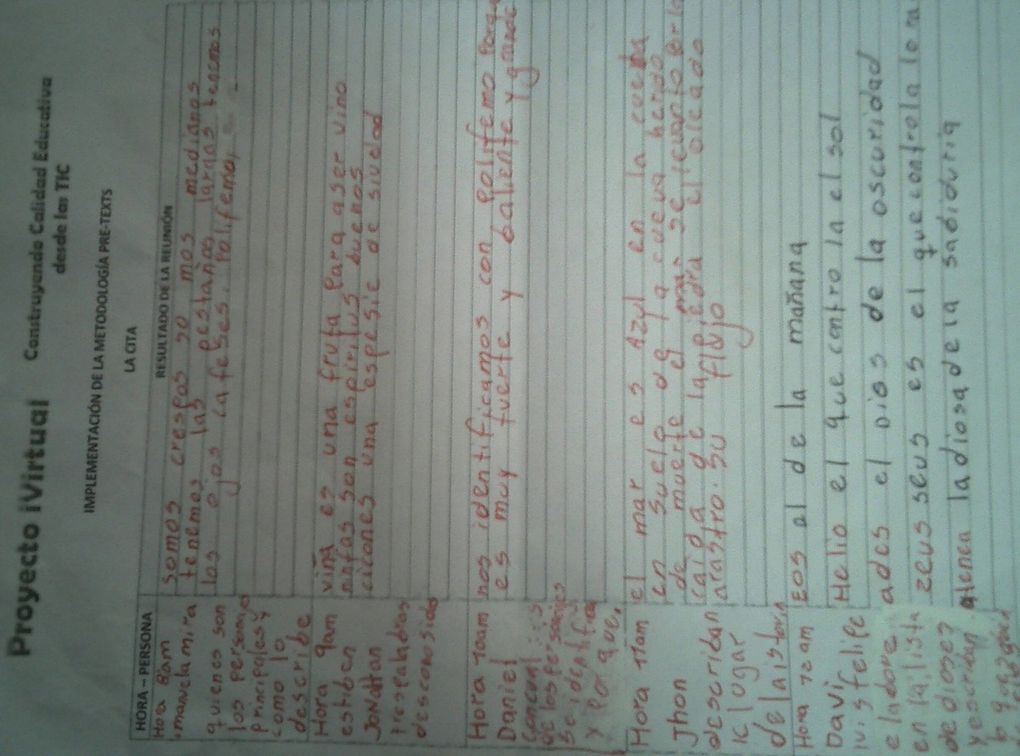 Proyecto iVirtual
Construyendo Calidad Educativa
desde las TIC
IMPLEMENTACIÓN DE LA METODOLOGÍA PRE-TEXTS
LA CITA
HORA – PERSONA
RESULTADO DE LA REUNIÓN
Hora 8am
manuela mira
quienes son
los personajes
principales y
como lo
describe
somos crespos so mos medianos
tenemos las pestañas largas tenemos
los ojos cafeses. Polifemo,
Hora 9am
estiben
Jonattan
tres palabras
desconosidas
viña es una fruta para aser vino
ninfas son espiritus buenos
ciclones una espesie de
Hora 10am
Daniel
de los personajes
se identifica
y por que,
nos identificamos con polifemo porque
es muy fuerte y baliente y grande
Hora 11am
Jhon
descridan
el lugar
de laistoria
el mar es azul en la cueba
en suelo de la cueva
de muerte el mar se levanto por la
caida de la piedra el oleado
arastro. su flujo
Hora 12am
Davi
uisfelife
eladore
en la lista
de dioses
yescriban
Eos al de la mañana
Helio el que contro la el sol
ades el Dios de la oscuridad
zeus seus es el que controla lo
atenea la diosa dela sabiduria